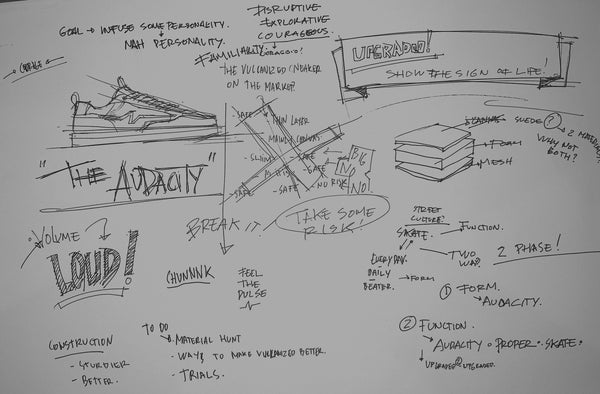 GOAL → INFUSE SOME PERSONALITY.
NAH PERSONALITY.
DISRUPTIVE
EXPLORATIVE
COURAGEOUS.
FAMILIARITY.
THE VULCANIZED SNEAKER
ON THE MARKET?
UPGRADED!
SHOW THE SIGN OF LIFE!
"THE AUDACITY"
- SAFE
THIN LAYER
- SLIM
- SAFE
- SAFE
- SAFE
- SAFE
NO RISK
BIG
NO
NO!
BREAK IT!
TAKE SOME
RISK!
SUEDE ?
→ 2 MATERIALS?
WHY NOT
BOTH?
FOAM
MESH
VOLUME
LOUD!
CHUNNNK
FEEL
THE
PULSE
STREET
CULTURE?
SKATE.
FUNCTION.
EVERYDAY.
DAILY
BEATER.
→ FORM
TWO
WAY?
2 PHASE!
① FORM.
→ AUDACITY.
② FUNCTION.
→ AUDACITY • PROPER • SKATE •
↓ UPGRADED UPGRADED.
CONSTRUCTION
- STURDIER
- BETTER.
TO DO
MATERIAL HUNT
- WAYS TO MAKE VULCANIZED BETTER.
- TRIALS.